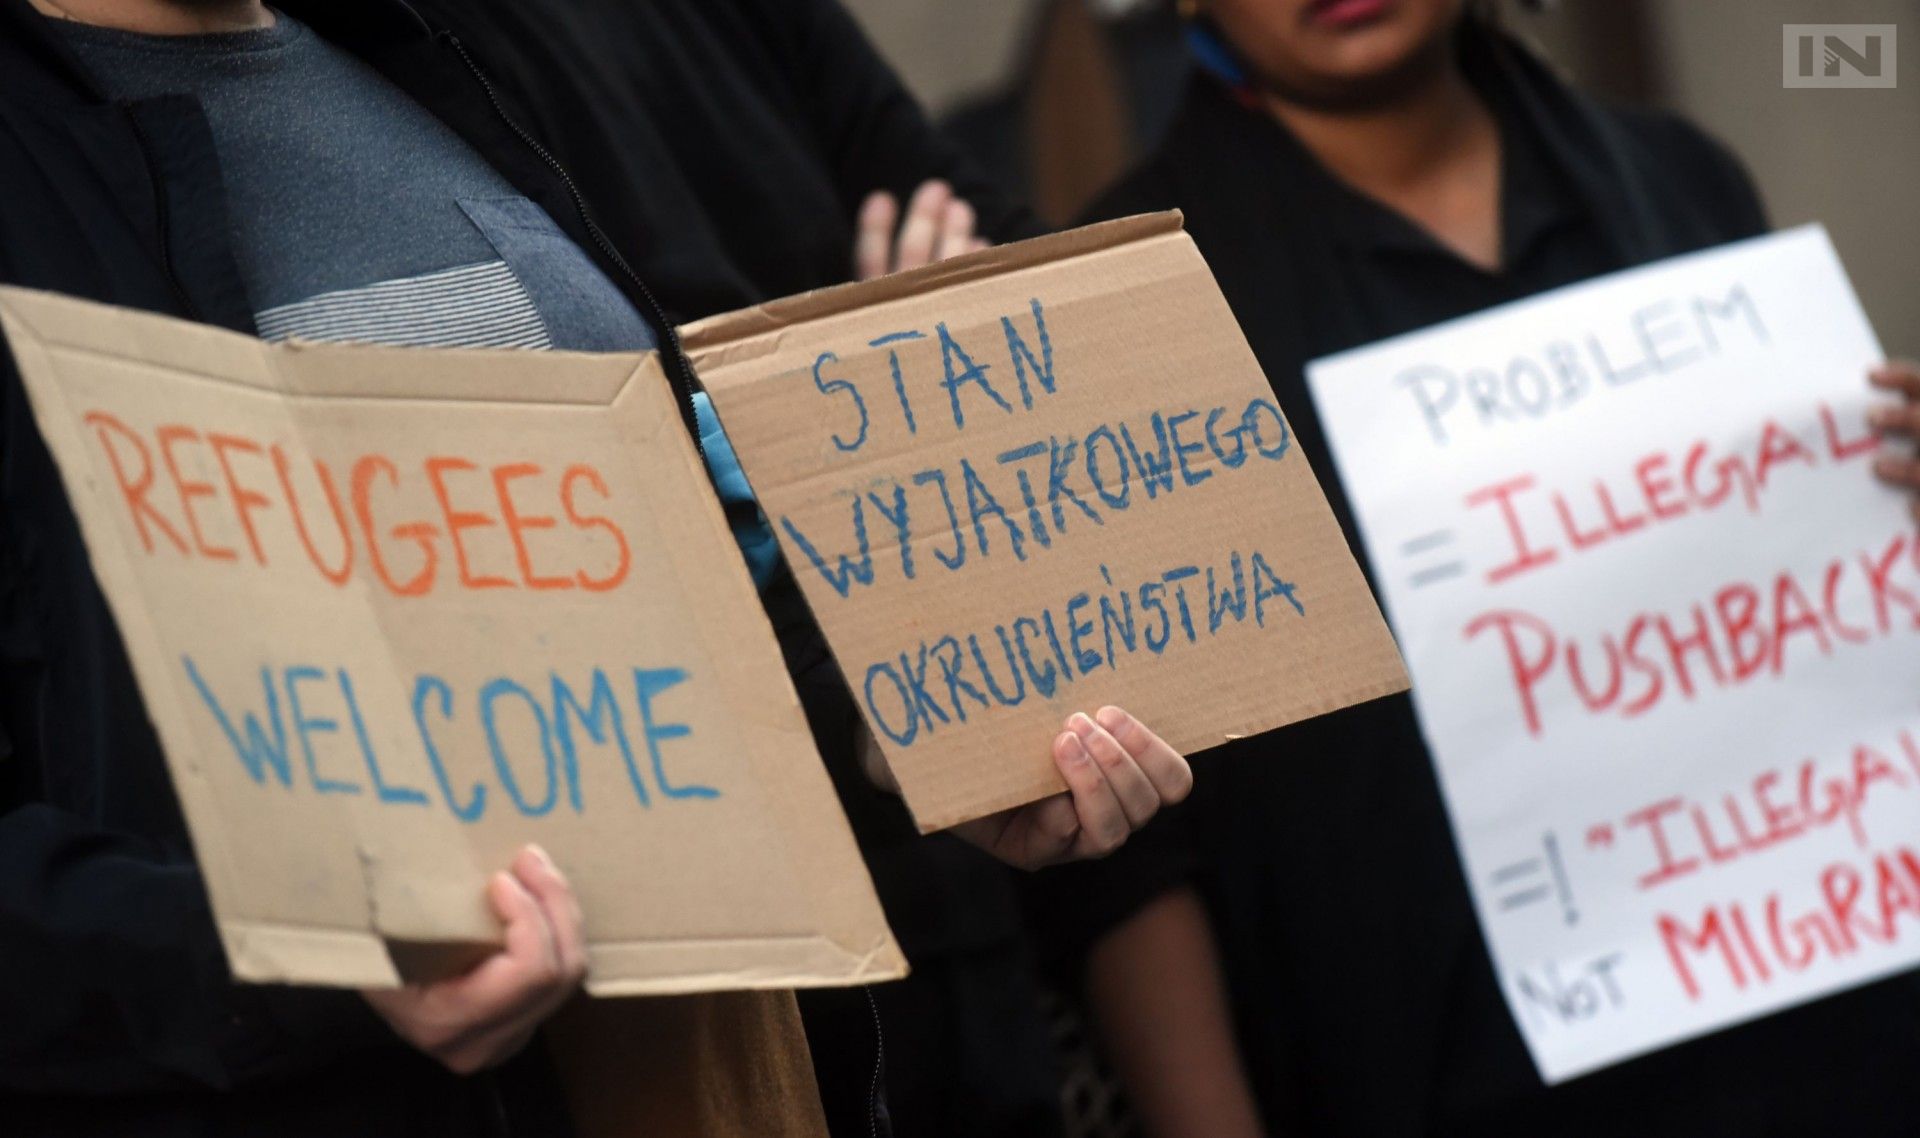 IN
REFUGEES
WELCOME
STAN
WYJĄTKOWEGO
OKRUCIEŃSTWA
PROBLEM
= ILLEGAL
PUSHBACKS
=! "ILLEGAL
NOT